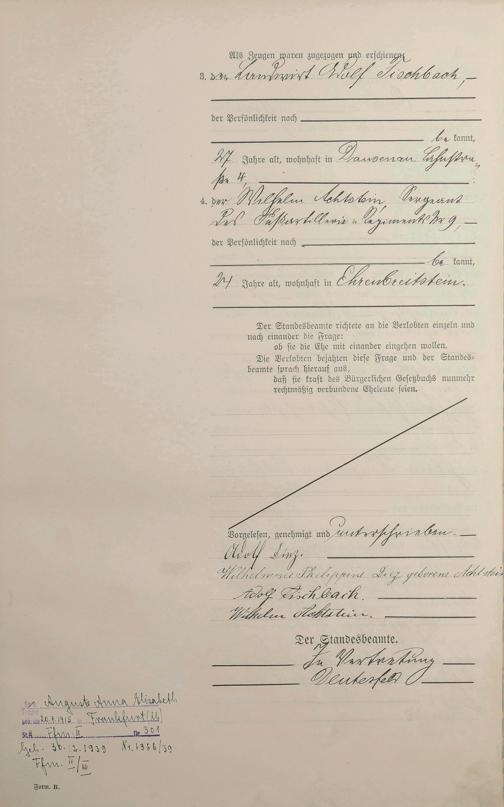 Als Zeugen waren zugezogen und erschienen:
3. der Landwirt Adolf Fischbach,
der Persönlichkeit nach
be kannt,
27 Jahre alt, wohnhaft in Dausenau Lahnstra„
ße 4,
4. der Wilhelm Achtstein, Sergeant
des Fußartillerie-Regiments Nr 9,
der Persönlichkeit nach
be kannt,
24 Jahre alt, wohnhaft in Ehrenbreitstein.
Der Standesbeamte richtete an die Verlobten einzeln und
nach einander die Frage:
ob sie die Ehe mit einander eingehen wollen.
Die Verlobten bejahten diese Frage und der Standes-
beamte sprach hierauf aus,
daß sie kraft des Bürgerlichen Gesetzbuchs nunmehr
rechtmäßig verbundene Eheleute seien.
Vorgelesen, genehmigt und unterschrieben.
Adolf
Wilhelmine Philippine geborene Achtstein
Adolf Fischbach.
Wilhelm Achtstein.
Der Standesbeamte.
In Vertretung
Auguste Anna Elisabeth
1915 in Frankfurt (M)
StA Ffm. II Nr 301
Geh. 30. 1939 Nr.
Ffm. II/III
Form. B.